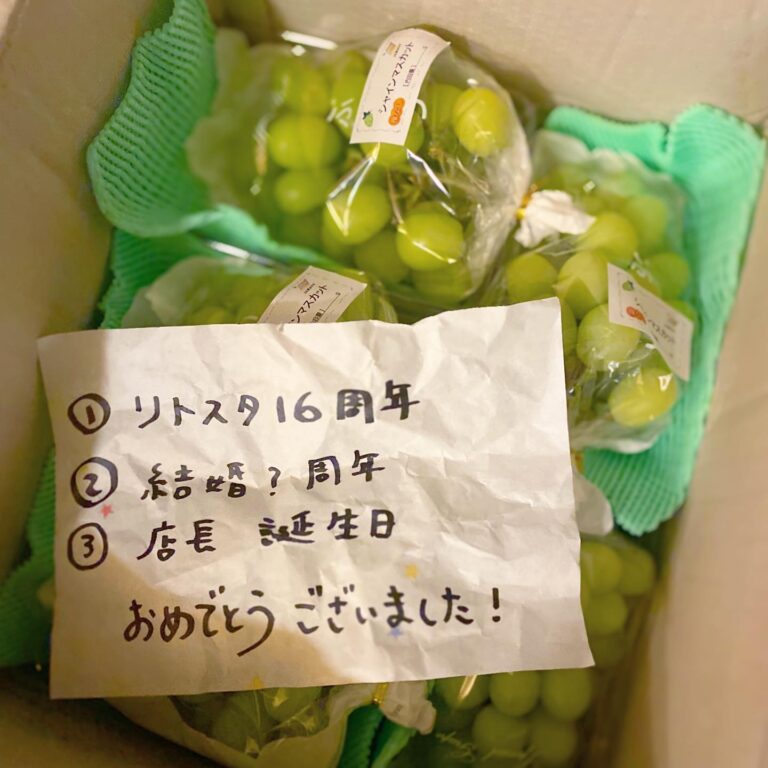 シャインマスカット
① リトスタ16周年
② 結婚？周年
③ 店長 誕生日
おめでとうございました！